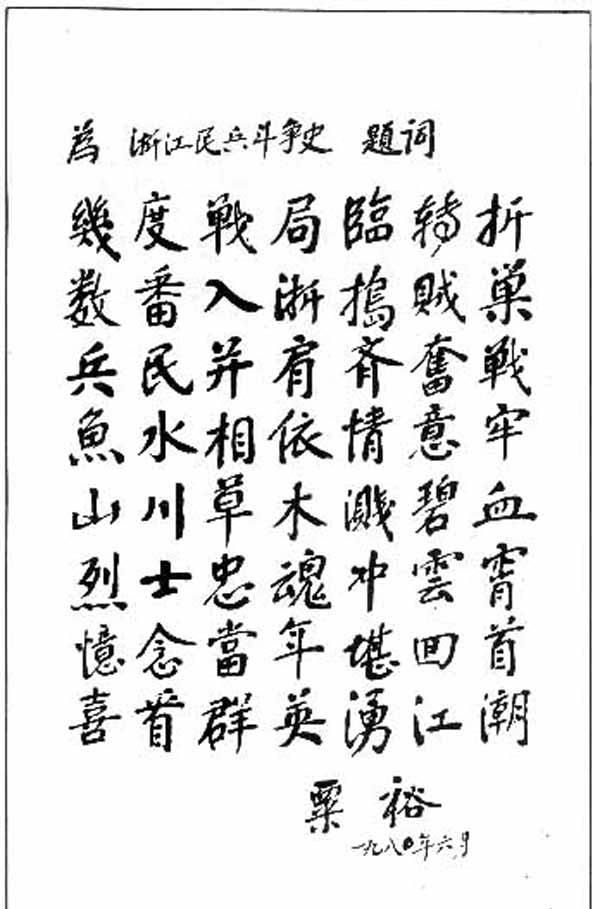 為 浙江民兵斗争史 題词
幾度戰局臨轉折
数番入浙搗賊巢
兵民并肩齐奮戰
魚水相依情意牢
山川草木濺碧血
烈士忠魂冲雲霄
憶念當年堪回首
喜看群英湧江潮
粟裕
一九八〇年六月